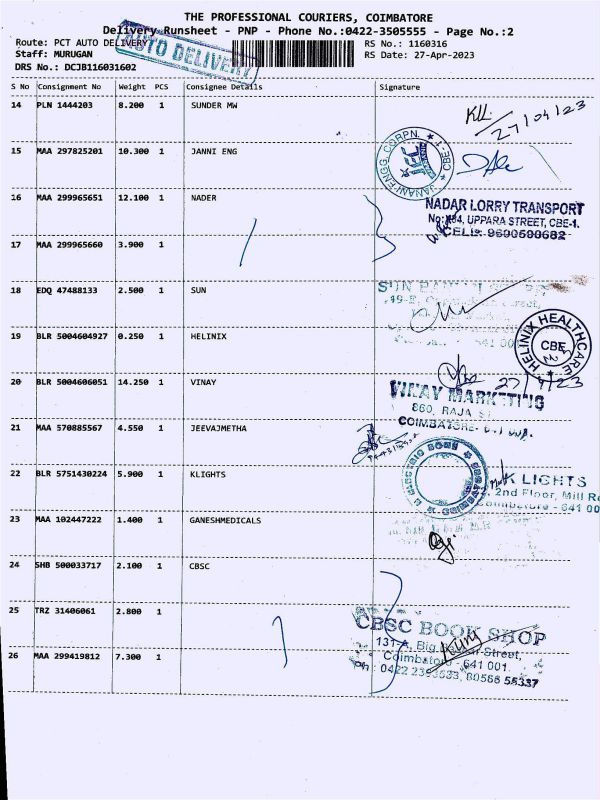 THE PROFESSIONAL COURIERS, COIMBATORE
Delivery Runsheet - PNP - Phone No.:0422-3505555 - Page No.:2
Route: PCT AUTO DELIVERY
AUTO DELIVERY
RS No.: 1160316
Staff: MURUGAN
RS Date: 27-Apr-2023
DRS No.: DCJB116031602
S No Consignment No Weight PCS Consignee Details Signature
14 PLN 1444203 8.200 1 SUNDER MW
27/04/23
15 MAA 297825201 10.300 1 JANNI ENG
JANANI ENGG. CORPN. ★ CBE-1 ★
16 MAA 299965651 12.100 1 NADER
NADAR LORRY TRANSPORT
UPPARA STREET, CBE-1.
CELL: 9600500682
17 MAA 299965660 3.900 1
18 EDQ 47488133 2.500 1 SUN
SUN
19 BLR 5004604927 0.250 1 HELINIX
HELINIX HEALTHCARE
CBE
20 BLR 5004606051 14.250 1 VINAY
27/4/23
VINAY MARKETING
860, RAJA ST.
COIMBATORE-
21 MAA 570885567 4.550 1 JEEVAJMETHA
22 BLR 5751430224 5.900 1 KLIGHTS
K LIGHTS
2nd Floor, Mill R
Coimbatore - 641 00
23 MAA 102447222 1.400 1 GANESHMEDICALS
24 SHB 500033717 2.100 1 CBSC
25 TRZ 31406061 2.800 1
CBSC BOOK SHOP
131-A, Big Street,
Coimbatore - 641 001.
26 MAA 299419812 7.300 1
Ph : 0422 80566 55337